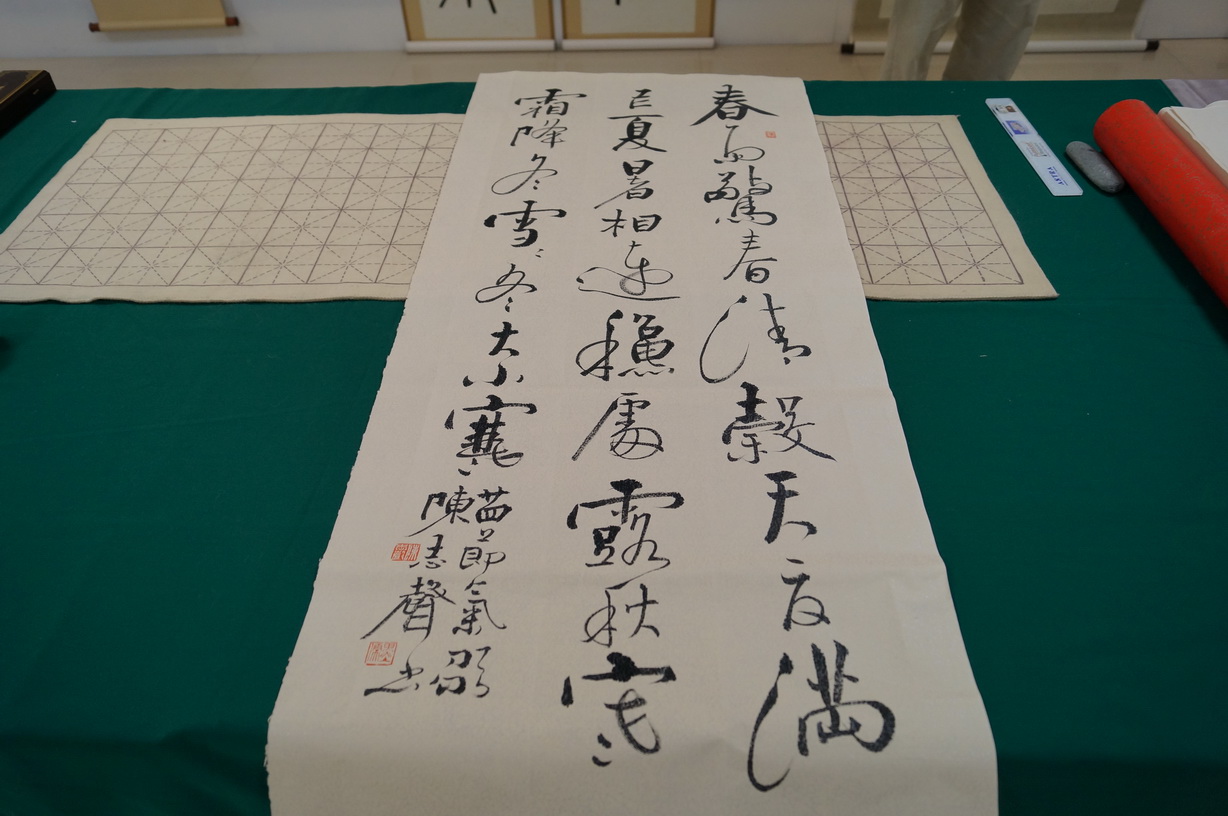 春雨驚春清穀天夏滿
芒夏暑相連穐處露秋寒
霜降冬雪〻冬大小寒
廿四節氣歌
陳志聲書